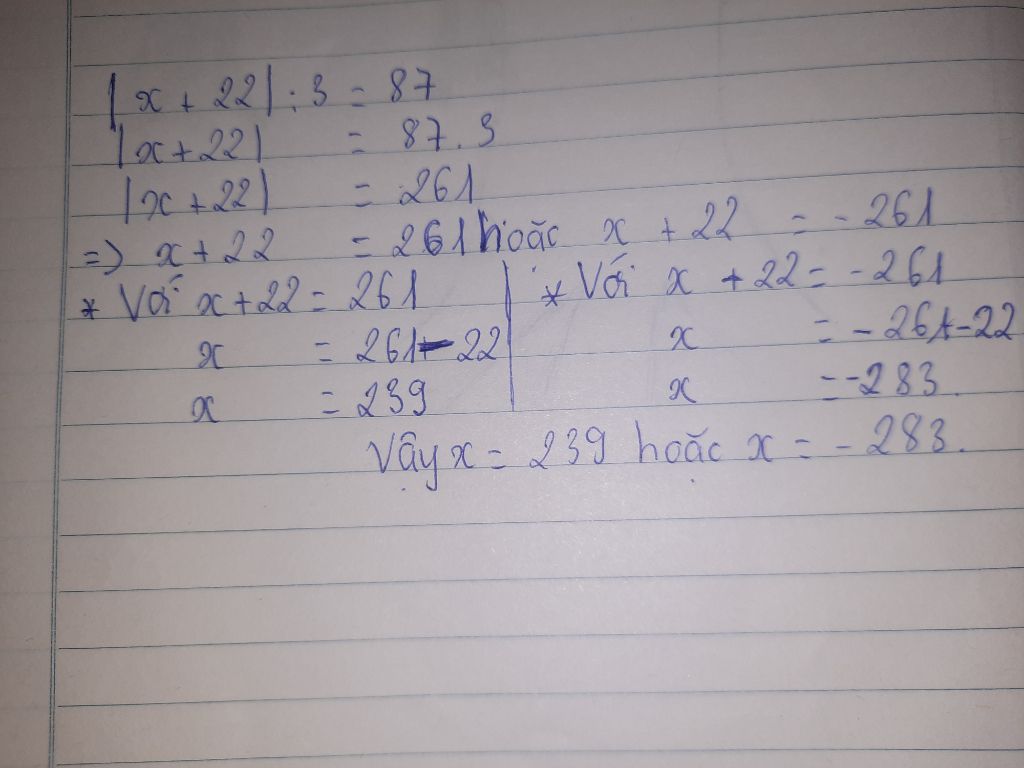 |x + 22| : 3 = 87
|x + 22| = 87 . 3
|x + 22| = 261
=> x + 22 = 261 hoặc x + 22 = - 261
* Với x + 22 = 261
x = 261 - 22
x = 239
* Với x + 22 = - 261
x = - 261 - 22
x = - 283.
Vậy x = 239 hoặc x = - 283.